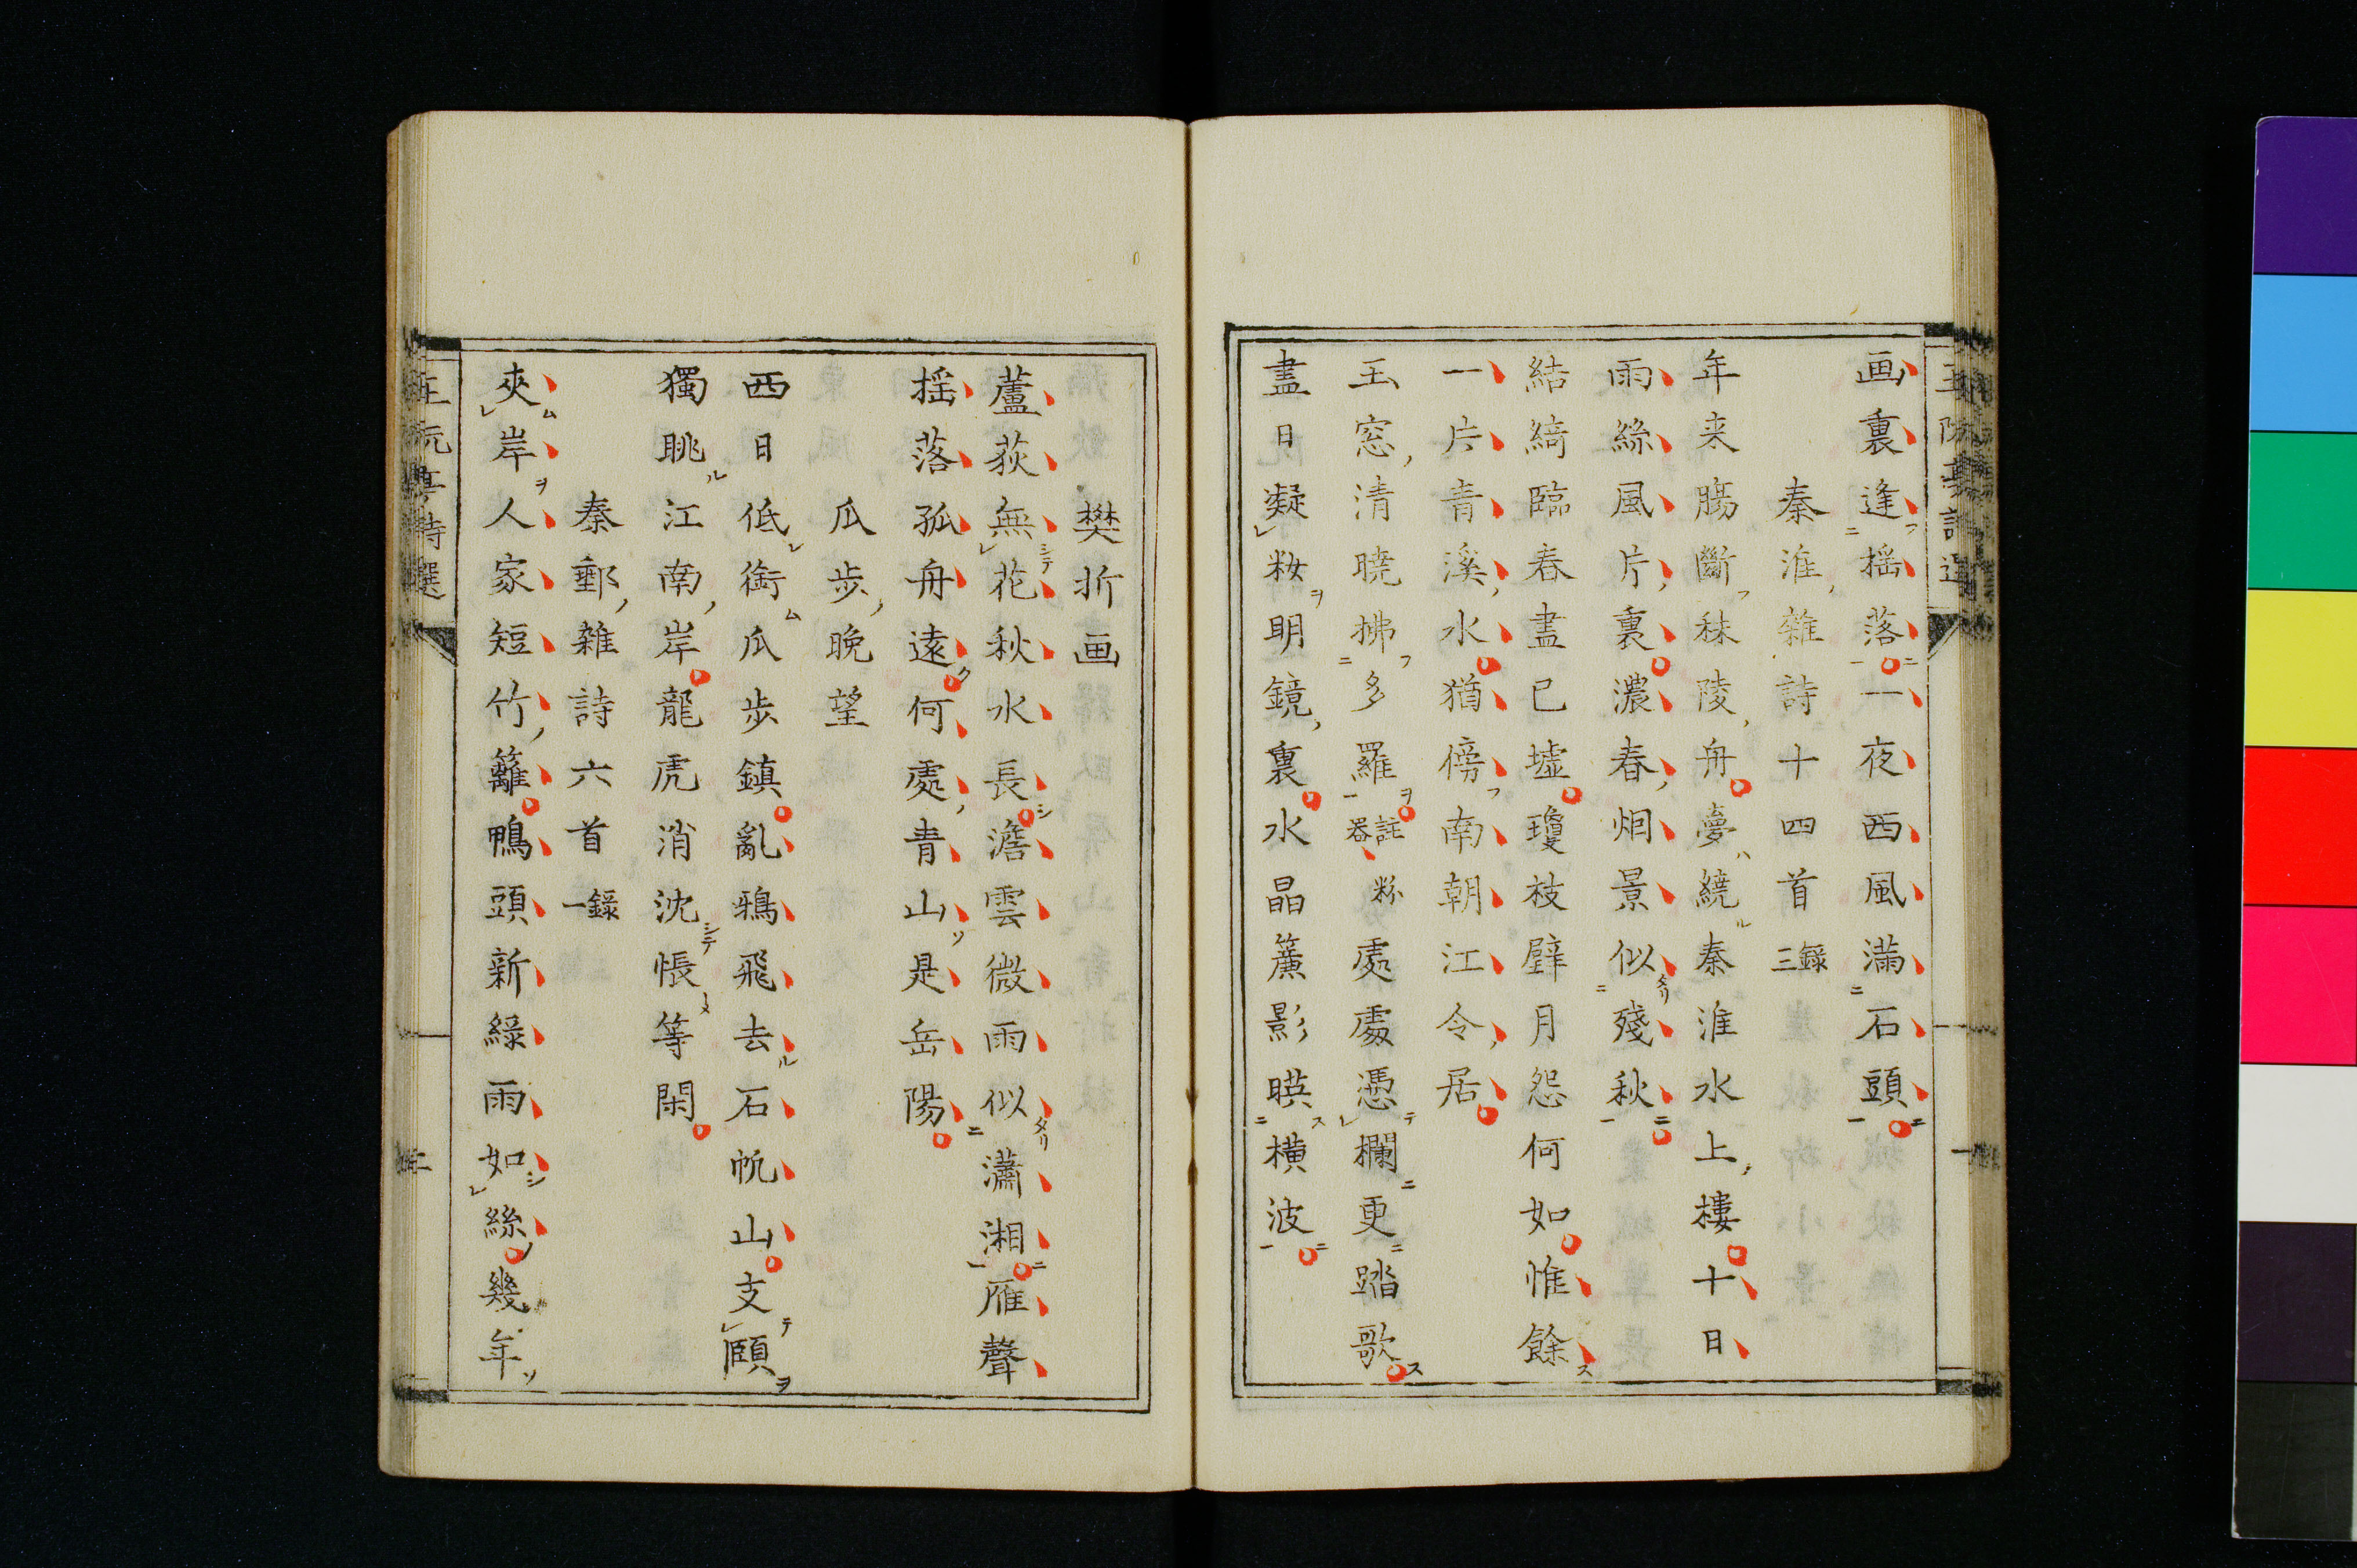 画裏逢揺落一夜西風満石頭
秦淮雑詩十四首 録三
年来膓斷秣陵舟夢繞秦淮水上樓十日
雨絲風片裏濃春烟景似殘秋
結綺臨春盡已墟瓊枝璧月怨何如惟餘
一片青溪水猶傍南朝江令居
玉窓清暁拂多羅 註粉器 處處憑欄更踏歌
盡日凝粧明鏡裏水晶簾影暎横波
樊圻画
蘆荻無花秋水長澹雲微雨似瀟湘雁聲
揺落孤舟遠何處青山是岳陽
瓜歩晩望
西日低銜瓜歩鎮亂鴉飛去石帆山支頤
獨眺江南岸龍虎消沈悵等閑
秦郵雑詩六首 録一
夾岸人家短竹籬鴨頭新緑雨如絲幾年
王阮亭詩選